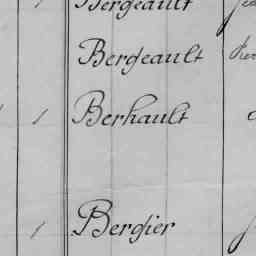 1 Bergeault
Bergeault
1 Berhault
1 Bergier